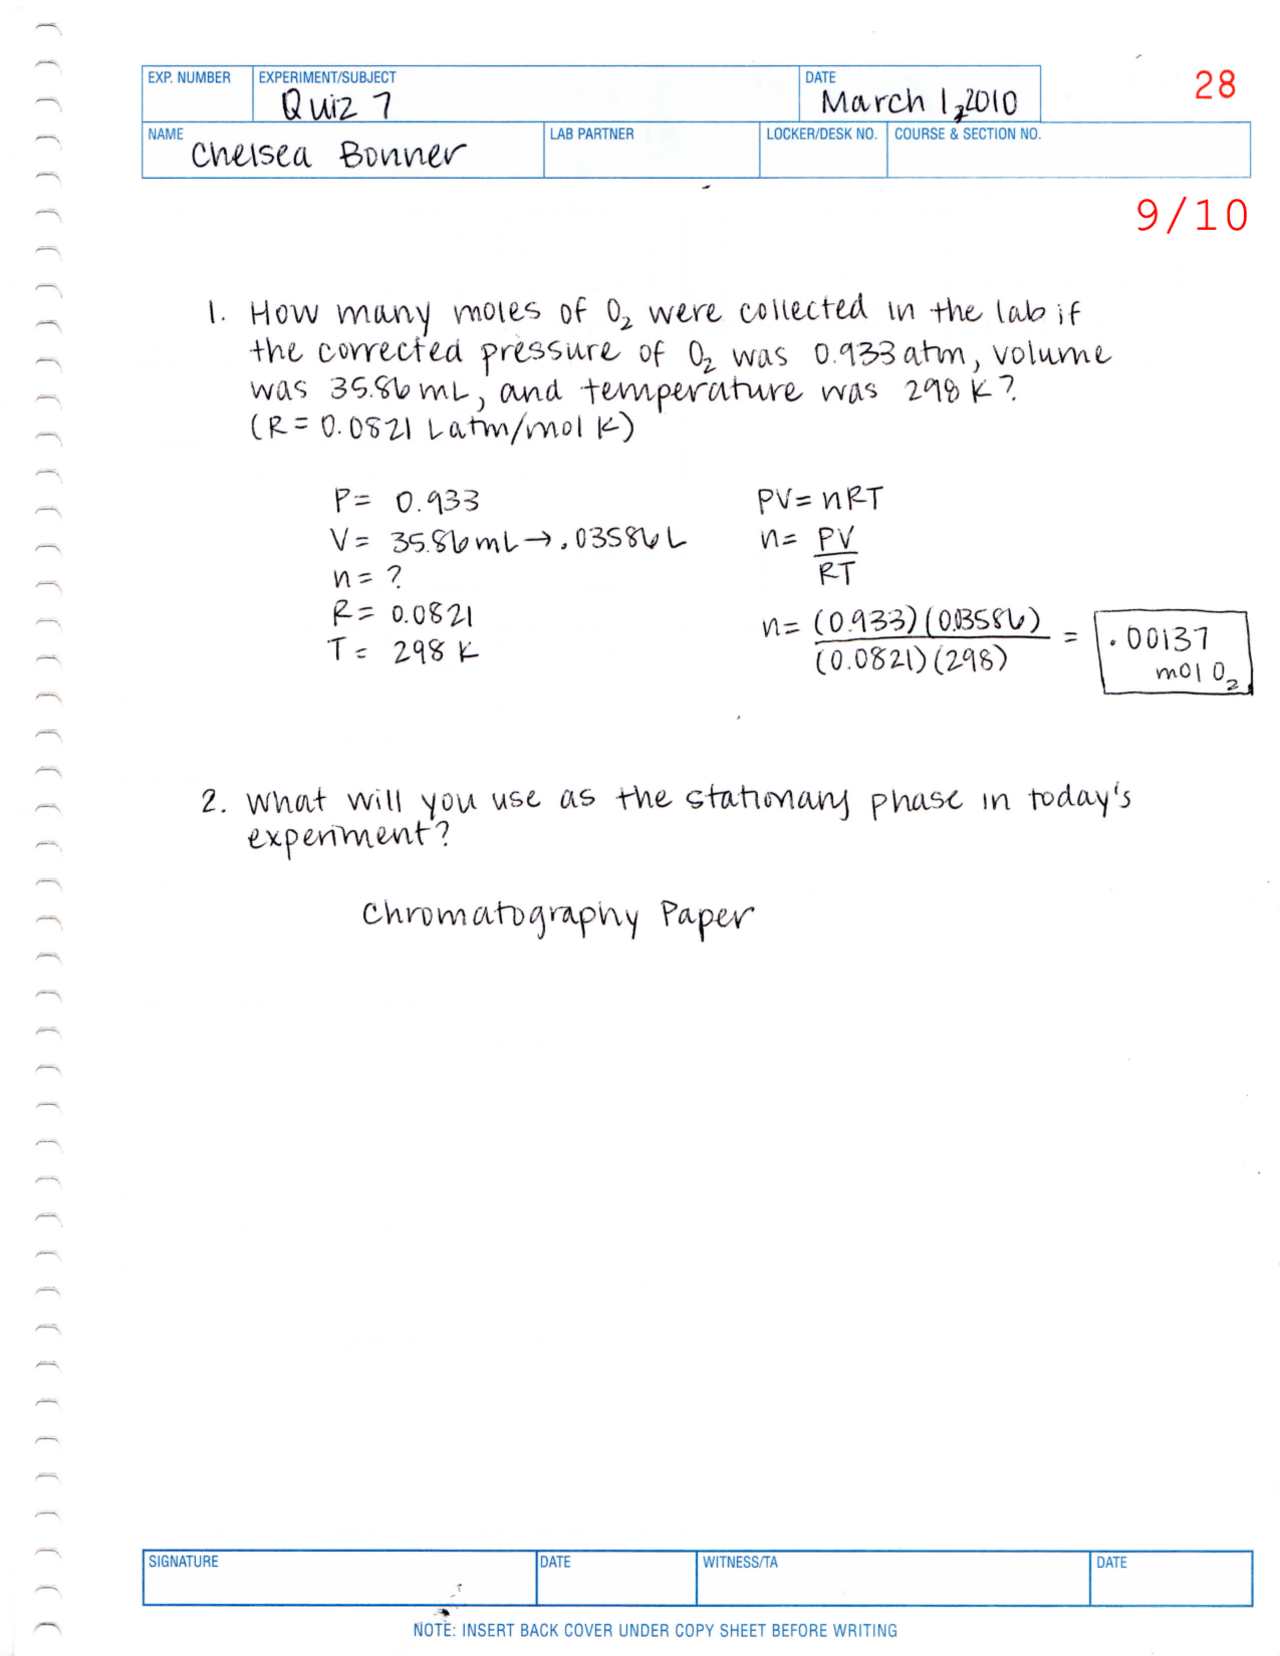 EXP. NUMBER EXPERIMENT/SUBJECT DATE 28
Quiz 7 March 1, 2010
NAME LAB PARTNER LOCKER/DESK NO. COURSE & SECTION NO.
Chelsea Bonner
9/10
1. How many moles of O₂ were collected in the lab if
the corrected pressure of O₂ was 0.933 atm, volume
was 35.86 mL, and temperature was 298 K?
(R = 0.0821 L atm/mol K)
P = 0.933
V = 35.86 mL → .03586 L
n = ?
R = 0.0821
T = 298 K
PV = nRT
n = PV
RT
n = (0.933)(0.03586) = .00137
(0.0821)(298) mol O₂
2. What will you use as the stationary phase in today's
experiment?
Chromatography Paper
SIGNATURE DATE WITNESS/TA DATE
NOTE: INSERT BACK COVER UNDER COPY SHEET BEFORE WRITING